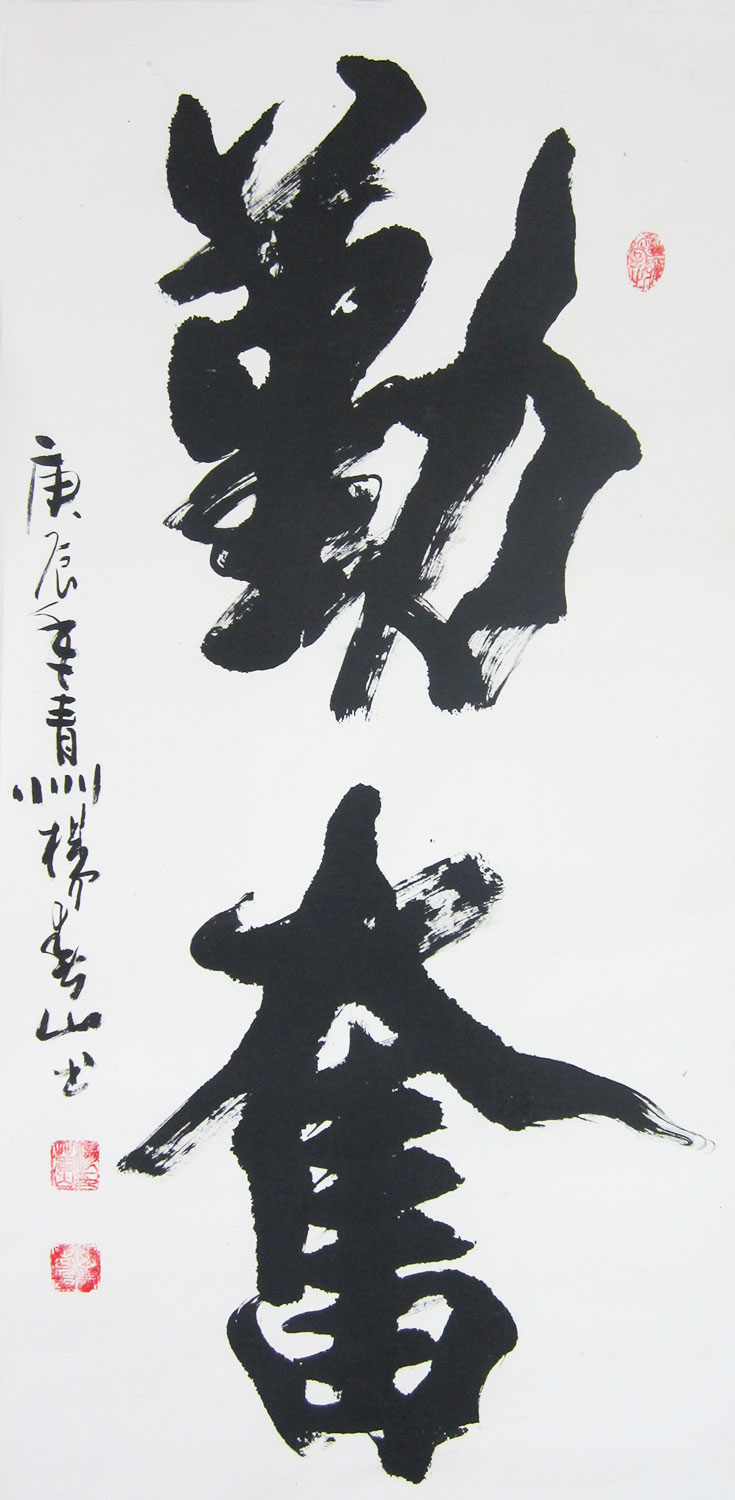 勤奮
庚辰年青州楊山书